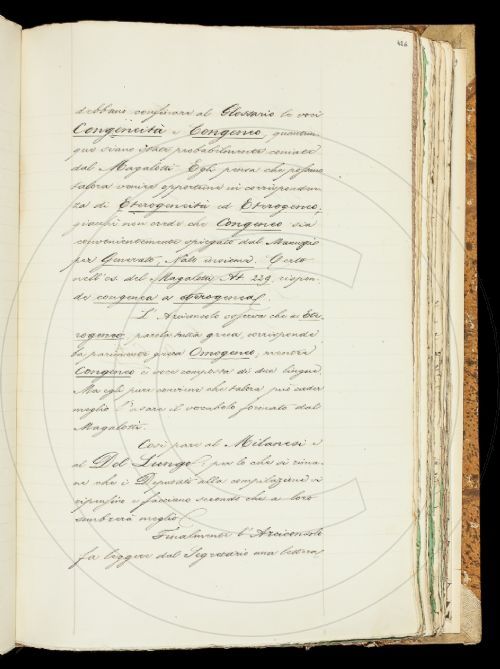 426
debbano confinare al Glossario le voci
Congeneità e Congeneo, quantun-
que siano state probabilmente coniate
dal Magalotti. Egli pensa che possano
talora venire opportune in corrisponden-
za di Eterogeneità ed Eterogeneo,
giacchè non crede che Congeneo sia
convenientemente spiegato dal Manuzzi
per Generato, Nato insieme. Certo
nell'es. del Magalotti At. 229, rispon-
de congenea a eterogenea.
L'Arciconsolo osserva che a Ete-
rogeneo, parola tutta greca, corrisponde
la parimente greca Omogeneo; mentre
Congeneo è voce composta di due lingue.
Ma egli pure conviene che talora può cader
meglio l'usare il vocabolo formato dal
Magalotti.
Così pare al Milanesi e
al Del Lungo: per lo che si rima-
ne che i Deputati alla compilazione vi
ripensino e facciano secondo che a loro
sembrerà meglio.
Finalmente l'Arciconsolo
fa leggere dal Segretario una lettera